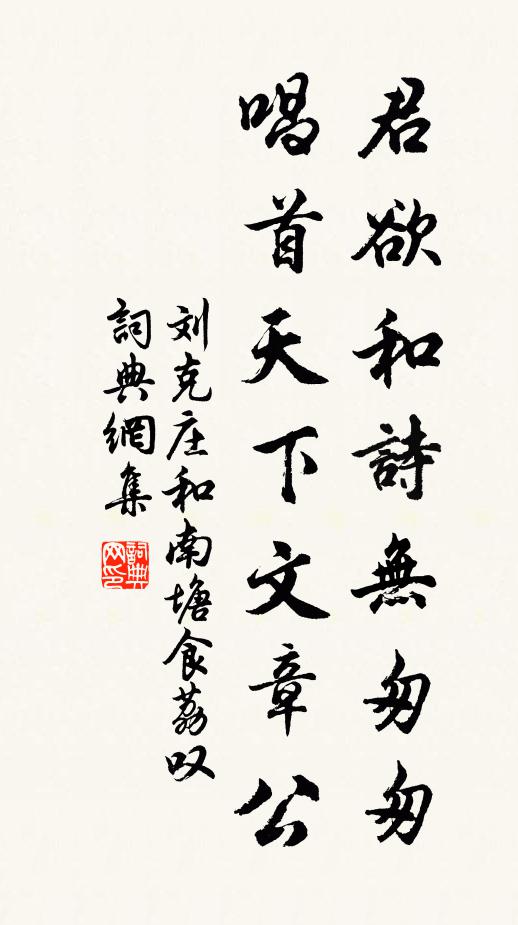 君欲和詩無匆匆
唱首天下文章公
刘克庄和南塘食荔叹
詞典網集
詞典网印